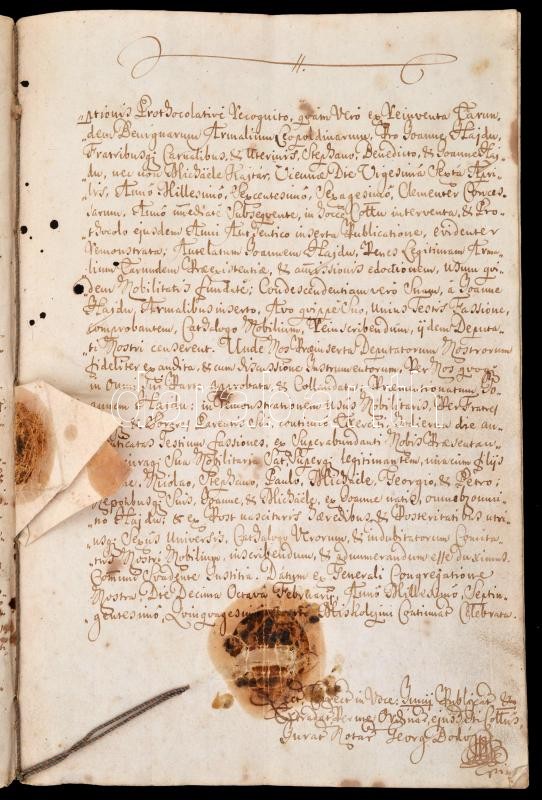 ptionis Prothocolative Recognito, quam Vero ex Reinventa Earun-
dem Benignarum Armalium Leopoldinarum, Pro Joanne Hajdu,
Fratribusq Carnalibus, & Uterinis, Stephano, Benedicto, & Joanne Haj-
du, nec non Michaele Kajtar; Viennae Die Vigesima Sexta Apri-
lis, Anno Millesimo, Sexcentesimo, Sexagesimo, Clementer Conces-
sarum, Anno immediate Subsequente, in Cottu interventa, & Pro-
thocolo ejusdem Anni Authentico inserta Publicatione, evidenter
Remonstrata; Antelatum Joannem Hajdu, Penes Legitimam Arma-
lium Earundem Praeexistentiae, & edoctionem, Usum qui-
dem Nobilitatis fundare; Condescendentiam vero Suam, a Joanne
Hajdu, Armalibus inserto, Avo quippe Suo, Unius Testis Fassione,
comprobantem, Cathalogo Nobilium, Reinscribendum, ijdem Deputa-
ti Nostri censerent. Unde Nos Praeinserta Deputatorum Nostrorum
fideliter exaudita, & cum Discussione Instrumentorum, Per Nos quoq
in omni Sui Parte approbata, & Collaudata, Praementionatum Jo-
annem Hajdu, in Remonstrationem Usus Nobilitaris, Per Fratres
& Sorores Parentis Sui, continuo
Testium fassiones, ex Superabundanti Nobis Praesentan-
Sua Nobilitaria Sat, Superq legitimantem, unacum filijs
Nicolao, Stephano, Paulo, Michaele, Georgio, & Petro;
Nepotibusq Suis, Joanne, & Michaele, ex Joanne natis, omnibus
Hajdu; & ex Post nascituris Haeredibus, & Posteritatibus utri-
usq Sexus Universis, Cathalogo Verorum, & indubitatorum Comita-
tus Nostri Nobilium, inscribendum, & adnumerandum esse duximus.
Communi Svadente Justitia. Datum ex Generali Congregatione
Nostra Die Decima Octava Februarij, Anno Millesimo, Septin-
gentesimo, Quinquagesimo Miskolczini Continuative Celebrata.
Lect. Correct in Voce: Jurij Publicat
Extradat Perme Ordinar, ejusdem Cottus
Jurat Notar Georg